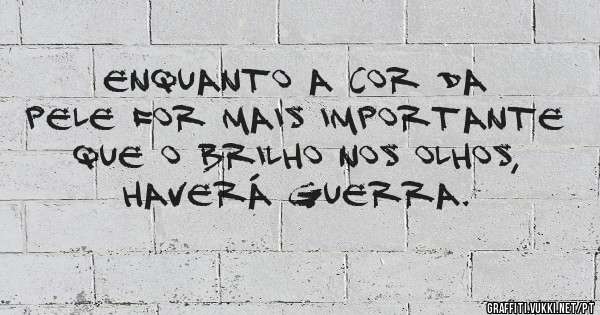 ENQUANTO A COR DA
PELE FOR MAIS IMPORTANTE
QUE O BRILHO NOS OLHOS,
HAVERÁ GUERRA.
GRAFFITI.VUKKI.NET/PT